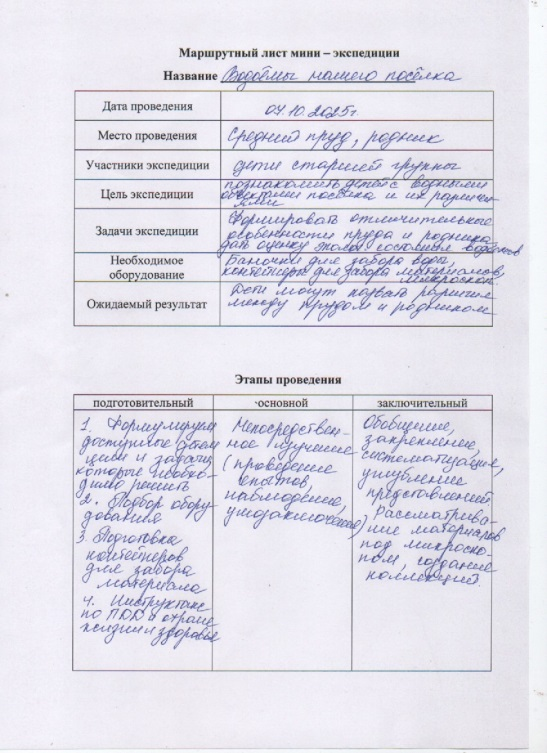 Маршрутный лист мини – экспедиции
Название Водоёмы нашего посёлка
Дата проведения 04.10.2025г.
Место проведения Средний пруд, родник
Участники экспедиции дети старшей группы
Цель экспедиции познакомить детей с водными
объектами посёлка и их различи-
ями
Задачи экспедиции Формировать отличительные
особенности пруда и родника,
дать оценку эколог. состояния водоёмов
Необходимое оборудование Баночки для забора воды,
контейнеры для забора материалов,
микроскоп
Ожидаемый результат Дети могут назвать различия
между прудом и родником
Этапы проведения
подготовительный основной заключительный
1. Формулируем
доступные детям
цели и задачи,
которые необхо-
димо решить
2. Подбор обору-
дования
3. Подготовка
контейнеров
для забора
материала
4. Инструктаж
по ПДД и охране
жизни и здоровья
Непосредствен-
ное изучение
(проведение
опытов,
наблюдение,
умозаключение)
Обобщение,
закрепление,
систематизация,
углубление
представлений
Рассматрива-
ние материалов
под микроско-
пом, создание
коллекций.